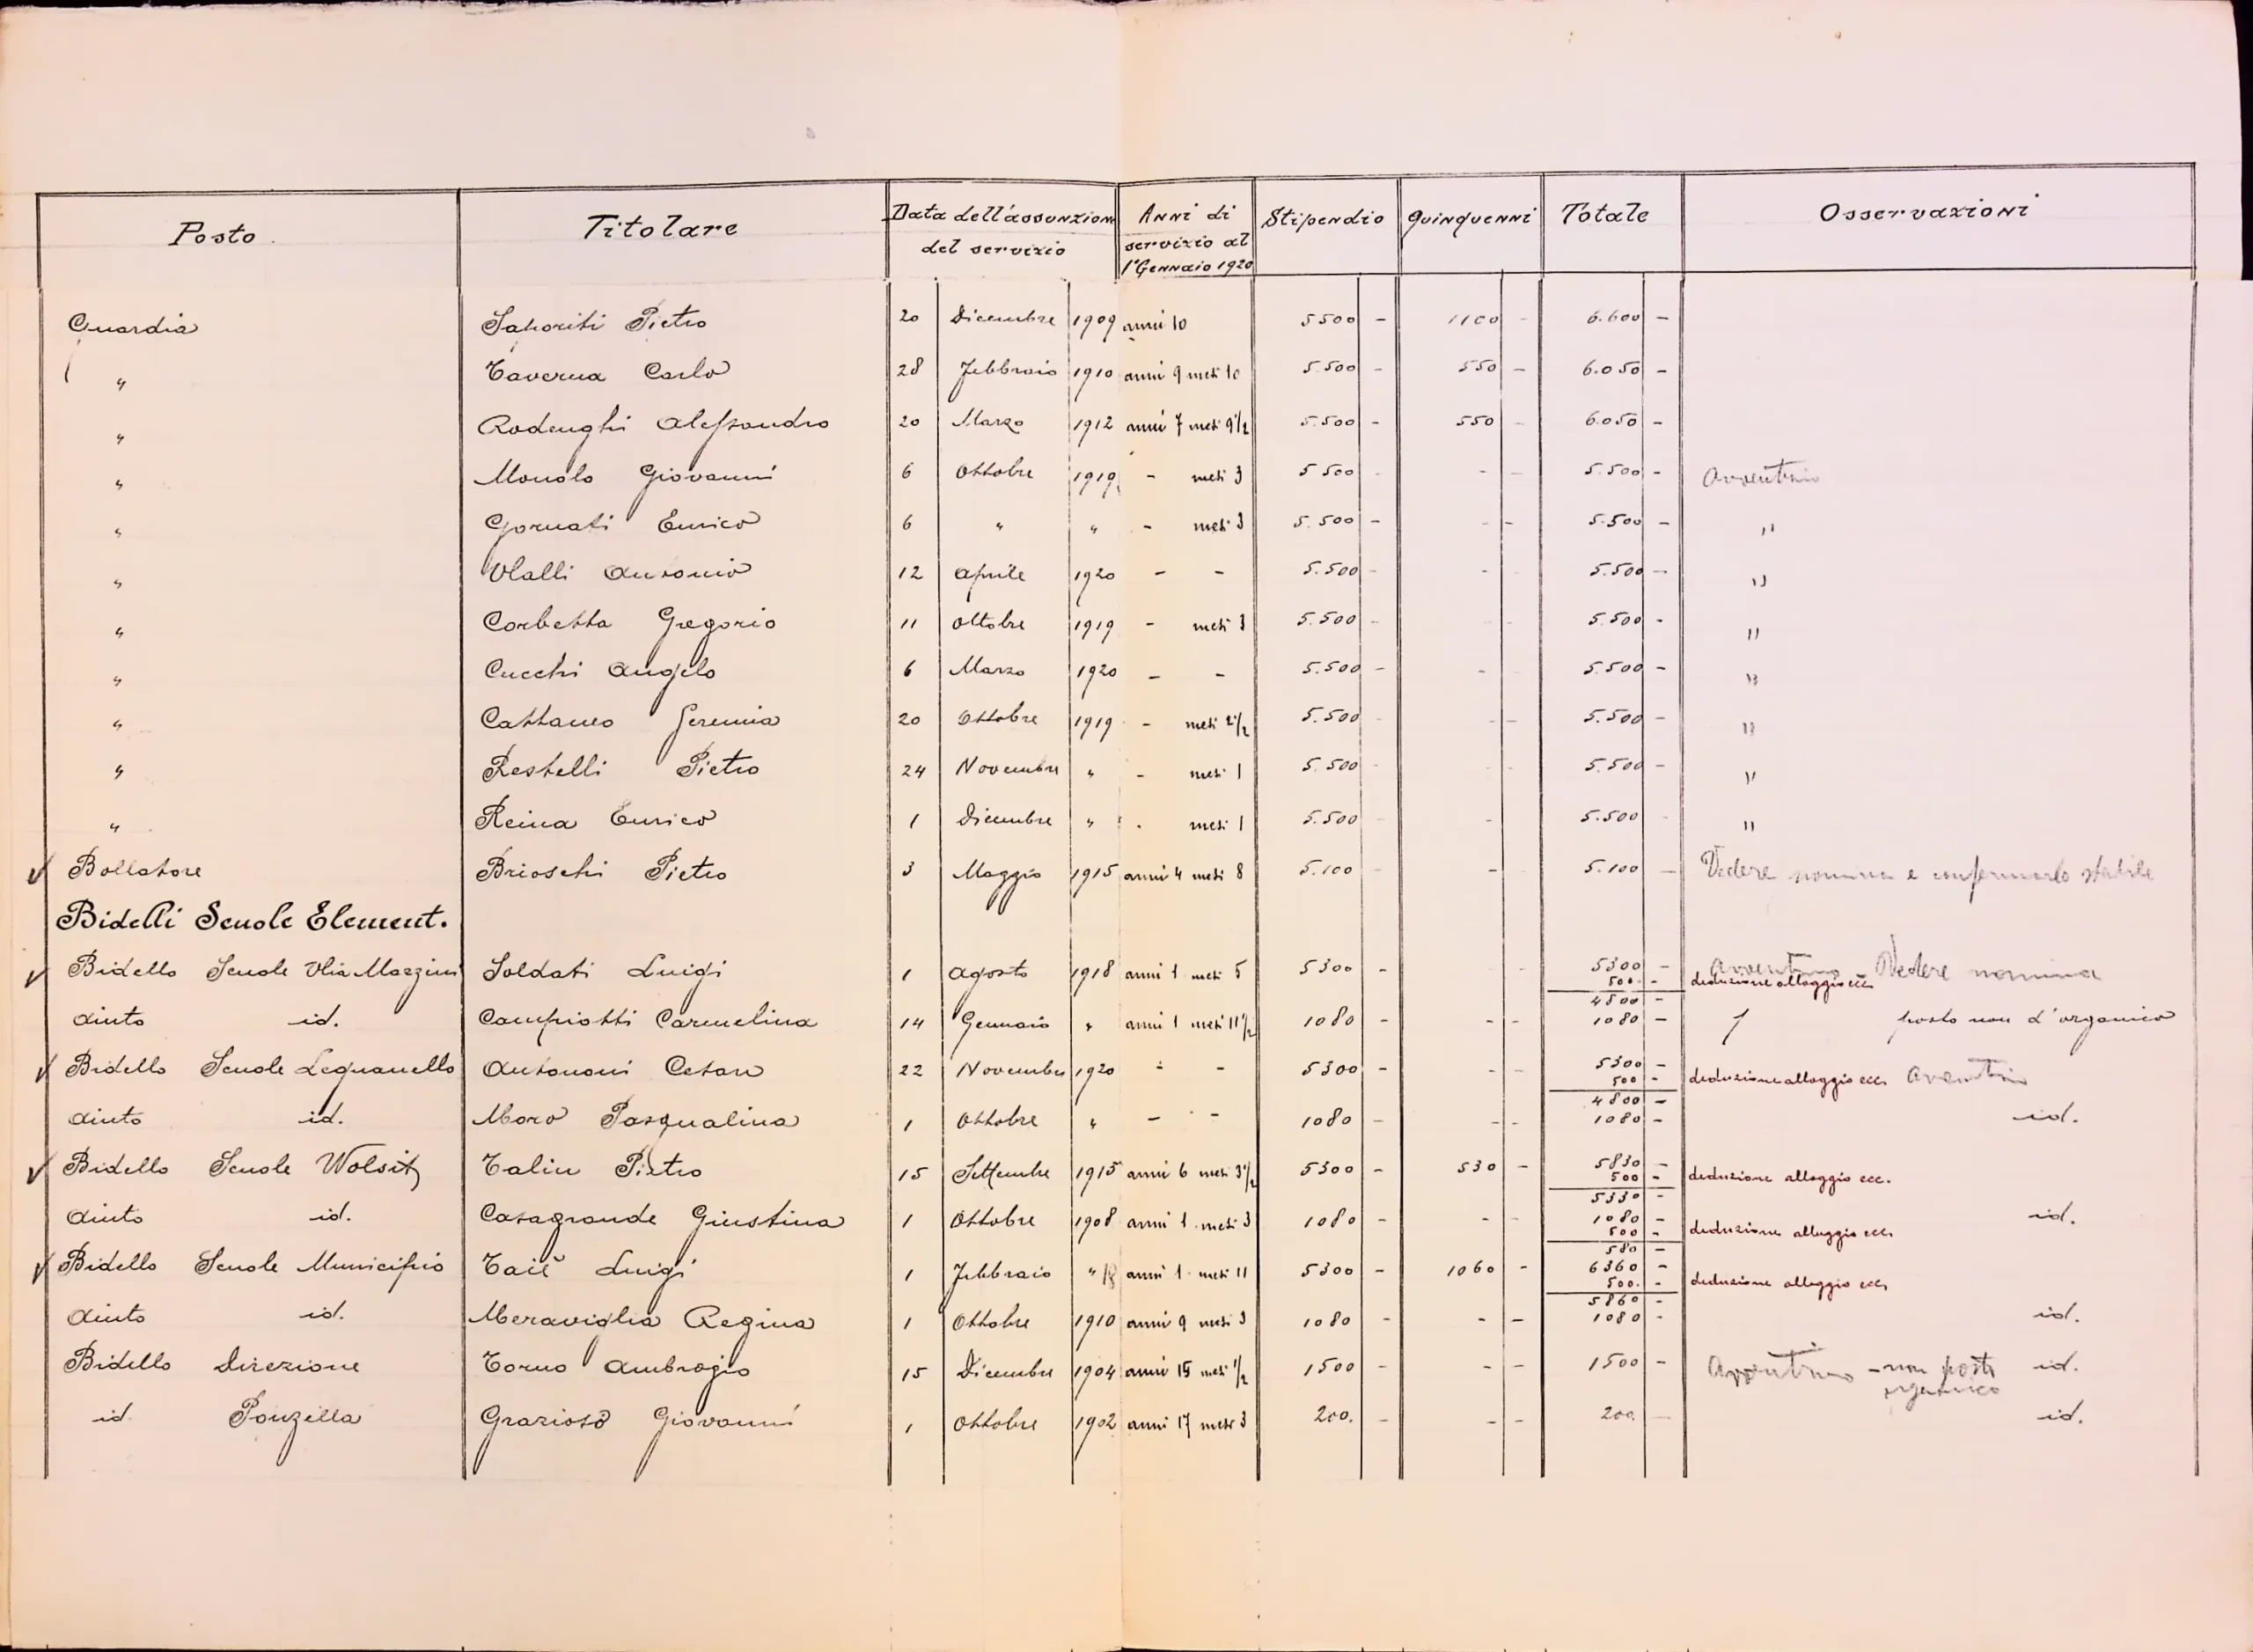 Posto Titolare Data dell'assunzione del servizio Anni di servizio al 1° Gennaio 1920 Stipendio Quinquenni Totale Osservazioni
Guardia Saporiti Pietro 20 Dicembre 1909 anni 10 5500 - 1100 - 6.600 -
" Taverna Carlo 28 Febbraio 1910 anni 9 mesi 10 5.500 - 550 - 6.050 -
" Rodenghi Alessandro 20 Marzo 1912 anni 7 mesi 9 1/2 5.500 - 550 - 6.050 -
" Monolo Giovanni 6 Ottobre 1919 - mesi 3 5500 - - - 5.500 - Avventizio
" Gornati Enrico 6 " " - mesi 3 5.500 - - - 5.500 - "
" Vlalli Ausonio 12 Aprile 1920 - - 5.500 - - 5.500 - "
" Corbetta Gregorio 11 Ottobre 1919 - mesi 3 5.500 - - - 5.500 - "
" Cucchi Angelo 6 Marzo 1920 - - 5.500 - - - 5.500 - "
" Cattaneo Geremia 20 Ottobre 1919 - mesi 2 1/2 5.500 - - - 5.500 - "
" Restelli Pietro 24 Novembre " - mesi 1 5.500 - - - 5.500 - "
" Reina Enrico 1 Dicembre " - mesi 1 5.500 - - 5.500 - "
Bollatore Brioschi Pietro 3 Maggio 1915 anni 4 mesi 8 5.100 - - - 5.100 - Vedere nomina e confermarlo stabile
Bidelli Scuole Element.
Bidello Scuole Via Mazzini Soldati Luigi 1 Agosto 1918 anni 1 mesi 5 5300 - - 5300 - Avventizio Vedere nomina
500 - deduzione alloggio ecc.
4800 -
Aiuto id. Campiotti Carmelina 14 Gennaio " anni 1 mesi 11 1/2 1080 - - - 1080 - posto non d'organico
Bidello Scuole Legnanello Antononi Cesare 22 Novembre 1920 - - 5300 - - - 5300 -
500 - deduzione alloggio ecc. Avventizio
4800 -
Aiuto id. Moro Pasqualina 1 Ottobre " - - 1080 - - - 1080 - id.
Bidello Scuole Wolsit Talin Pietro 15 Settembre 1915 anni 6 mesi 3 1/2 5300 - 530 - 5830 -
500 - deduzione alloggio ecc.
5330 -
Aiuto id. Casagrande Giustina 1 Ottobre 1908 anni 1 mesi 3 1080 - - - 1080 - id.
500 - deduzione alloggio ecc.
580 -
Bidello Scuole Municipio Taiè Luigi 1 Febbraio " anni 1 mesi 11 5300 - 1060 - 6360 -
500 - deduzione alloggio ecc.
5860 -
Aiuto id. Meraviglia Regina 1 Ottobre 1910 anni 9 mesi 3 1080 - - - 1080 - id.
Bidello Direzione Torno Ambrogio 15 Dicembre 1904 anni 15 mesi 1/2 1500 - - - 1500 - Avventizio - non posto id.
organico
id. Ponzella Grazioso Giovanni 1 Ottobre 1902 anni 17 mesi 3 200. - - - 200. - id.